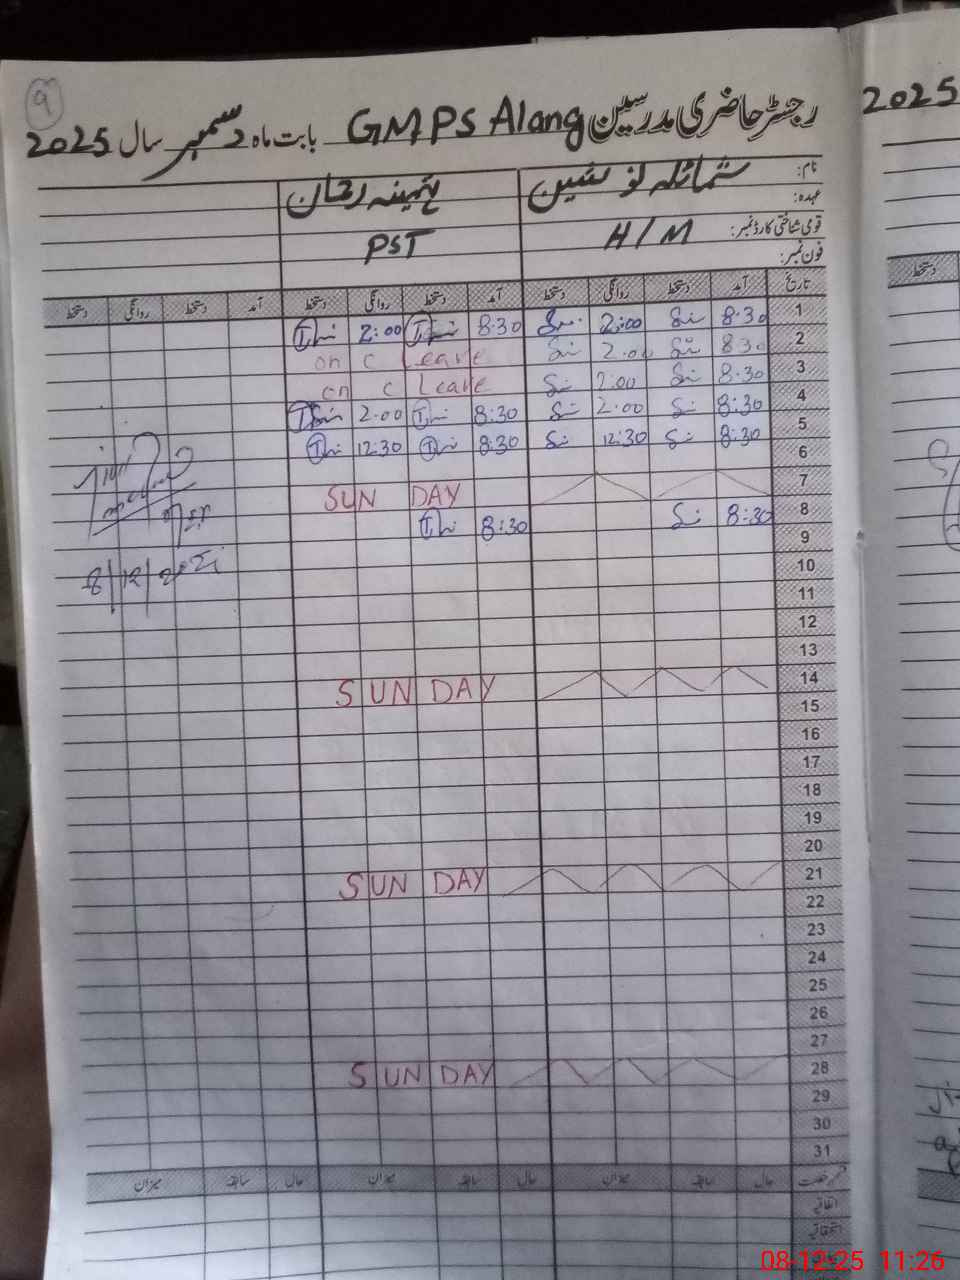 9
رجسٹر حاضری مدرسین GMPS Alang بابت ماہ دسمبر سال 2025
2025
نام: شمائلہ نوشین تہمینہ رمضان
عہدہ:
قومی شناختی کارڈ نمبر: H/M PST
فون نمبر:
تاریخ آمد دستخط روانگی دستخط آمد دستخط روانگی دستخط آمد دستخط روانگی دستخط
دستخط
1 8:30 2:00 8:30 2:00
2 8:30 2:00 on C Leave
3 8:30 2:00 on C Leave
4 8:30 2:00 8:30 2:00
5 8:30 12:30 8:30 12:30
6
7 SUNDAY
8 8:30 8:30
9
8/12/2025
10
11
12
13
14 SUNDAY
15
16
17
18
19
20
21 SUNDAY
22
23
24
25
26
27
28 SUNDAY
29
30
31
حال سابقہ میزان حال سابقہ میزان حال سابقہ میزان
اتفاقیہ
استحقاقیہ
08-12-25 11:26